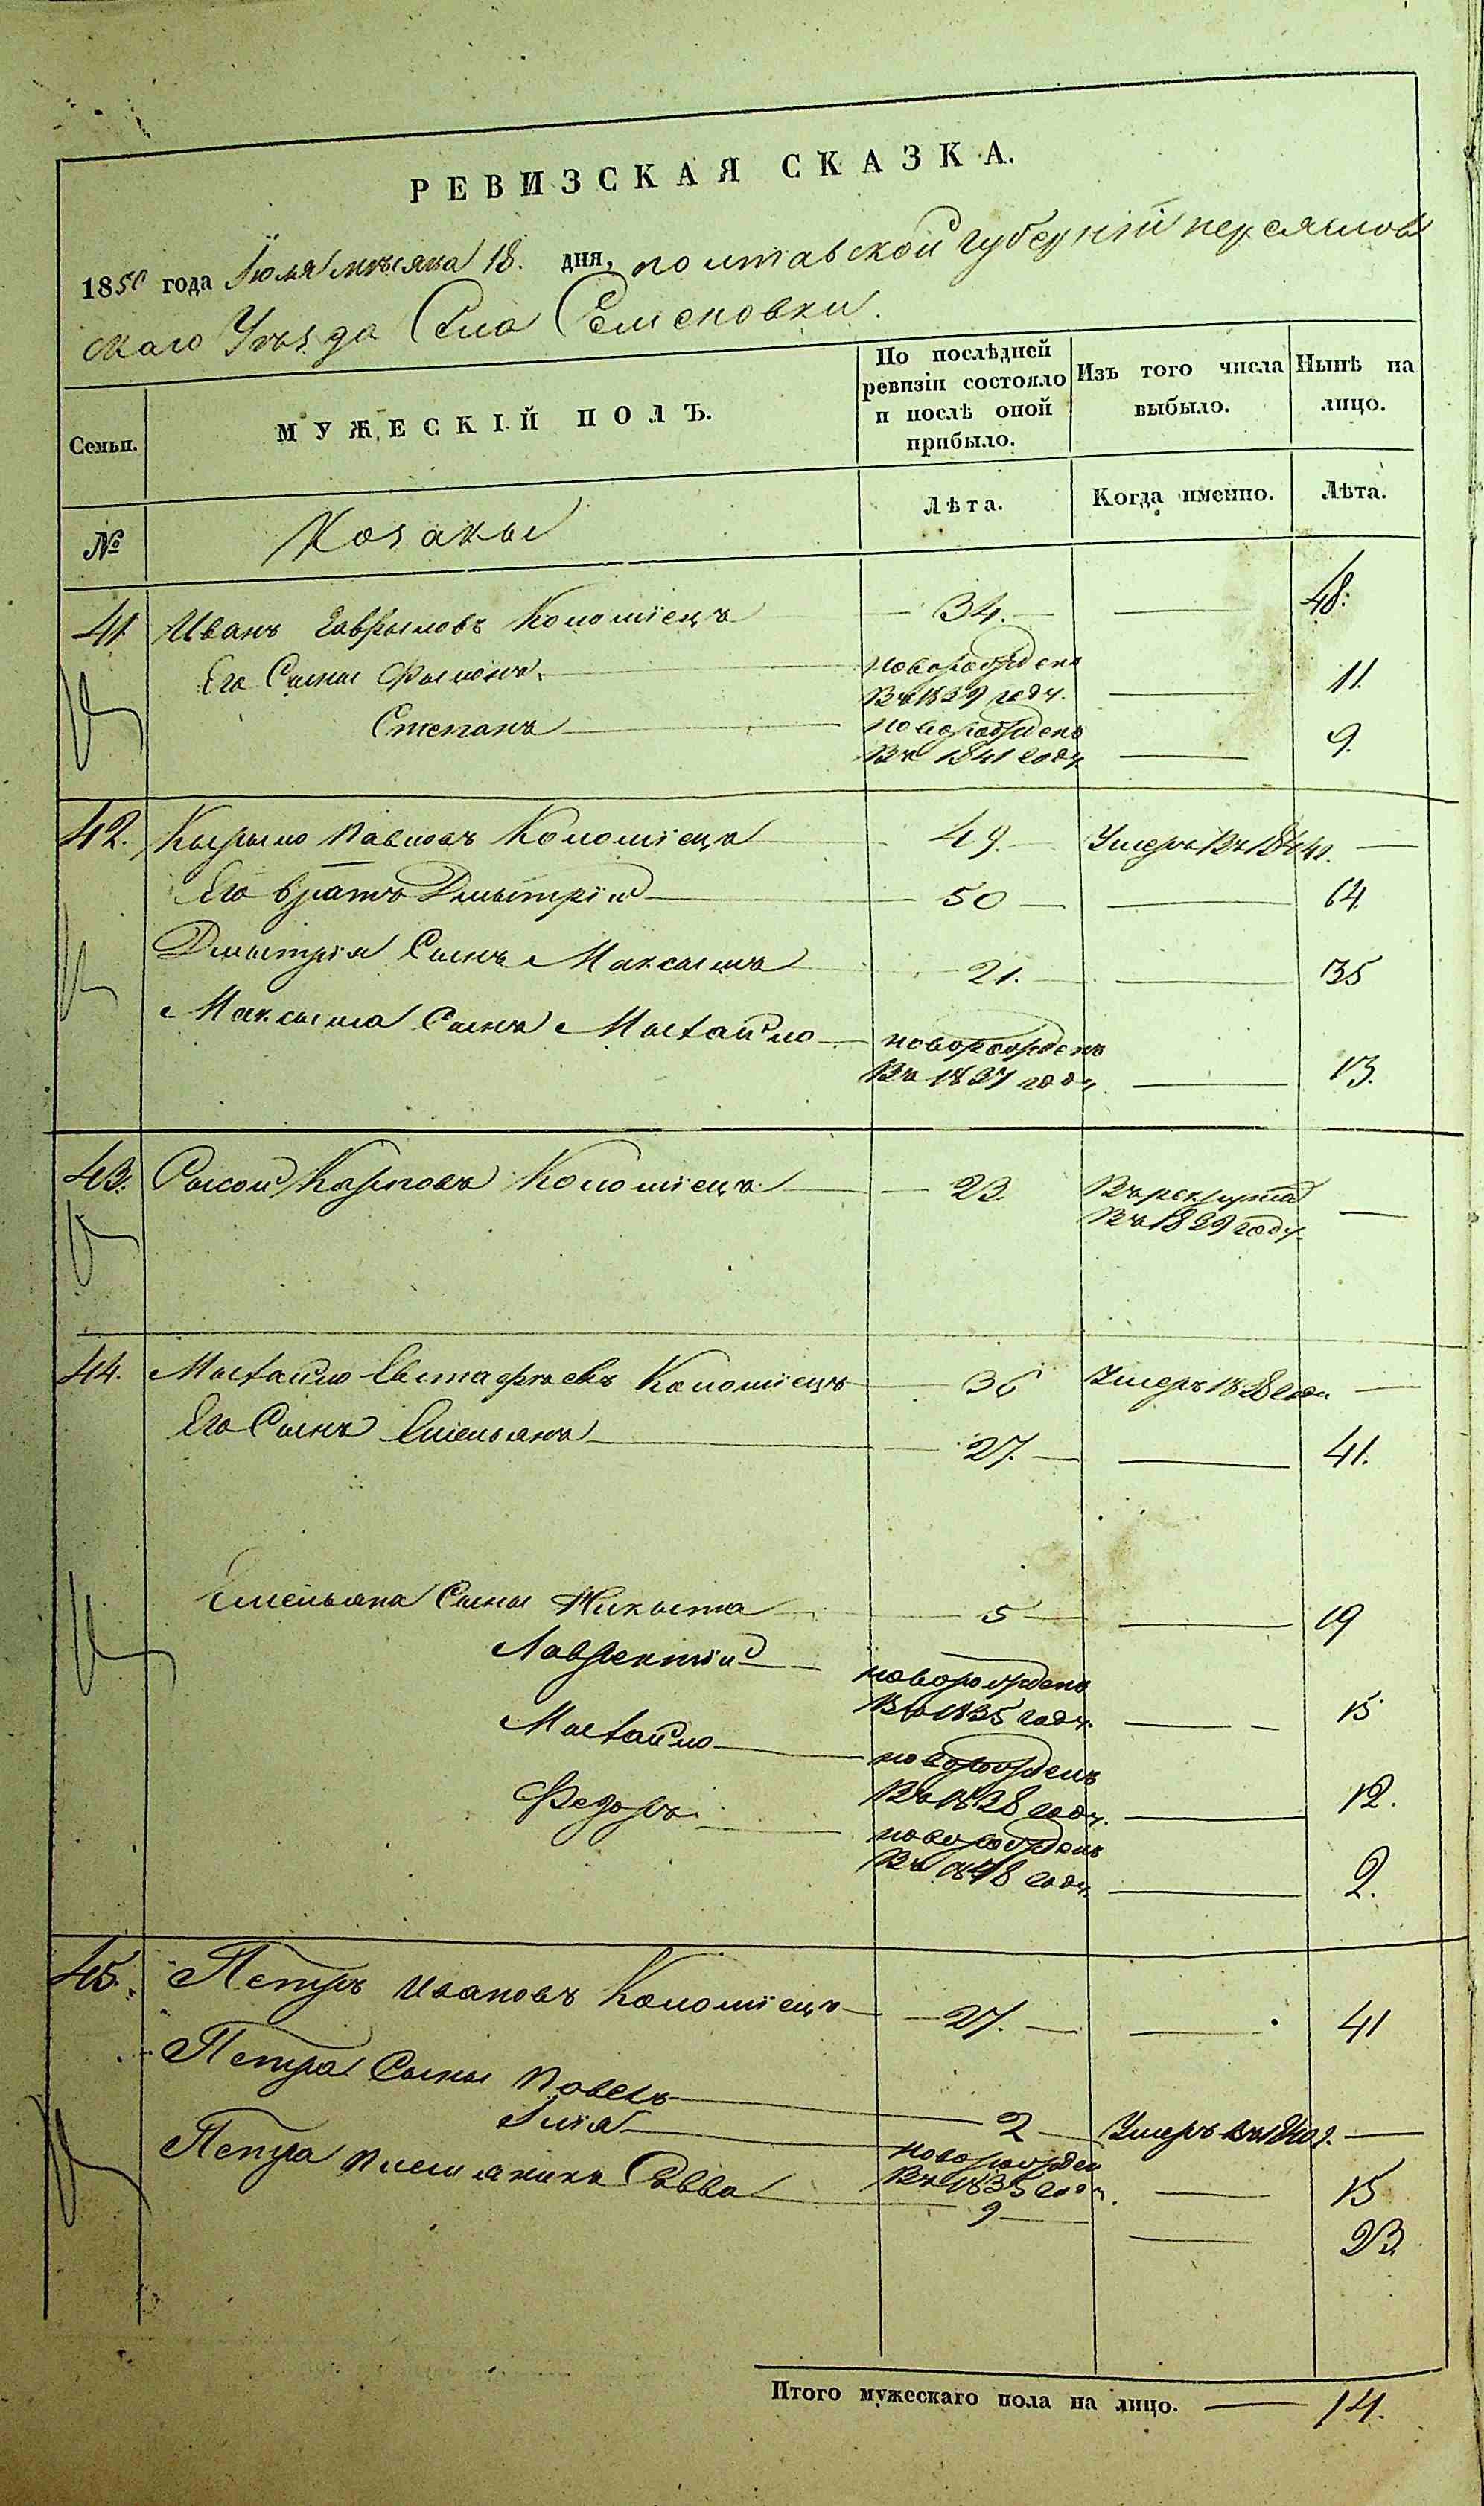 РЕВИЗСКАЯ СКАЗКА.
1850 года Іюля мѣсяца 18. дня, полтавской губерніи переяслов
скаго Уѣзда Села Семеновки.
Семьи.
МУЖЕСКІЙ ПОЛЪ.
По послѣдней ревизіи состояло и послѣ оной прибыло.
Изъ того числа выбыло.
Нынѣ на лицо.
№
Козаки
Лѣта.
Когда именно.
Лѣта.
41. Иванъ Гаврыловъ Коломіецъ 34. 48.
Его Сыны Фылипъ новорожденъ
въ 1839 году. 11.
Степанъ новорожденъ
въ 1841 году 9.
42. Кырыло Павловъ Коломіецъ 49. Умеръ въ 1844г.
Его братъ Дмытрій 50 64
Дмытрія Сынъ Максымъ 21. 35
Максыма Сынъ Мыхайло новорожденъ
въ 1837 году 13.
43. Сысой Карповъ Коломіецъ 23 въ рекрутѣ
въ 1839 году.
44. Мыхайло Евстафіевъ Коломіецъ 36 Умеръ
Его Сынъ Емельянъ 27. 41.
Емельяна Сыны Никыта 5 19
Лаврентій новорожденъ
въ 1835 году. 15
Мыхайло новорожденъ
въ 1838 году. 12.
Федоръ новорожденъ
въ 1848 году. 2.
45. Петръ Ивановъ Коломіецъ 27. 41
Петра Сыны Павелъ 2 Умеръ въ
Илія новорожден
въ 1835 году. 15
Петра племяникъ Савва 9 23.
Итого мужескаго пола на лицо. 14.